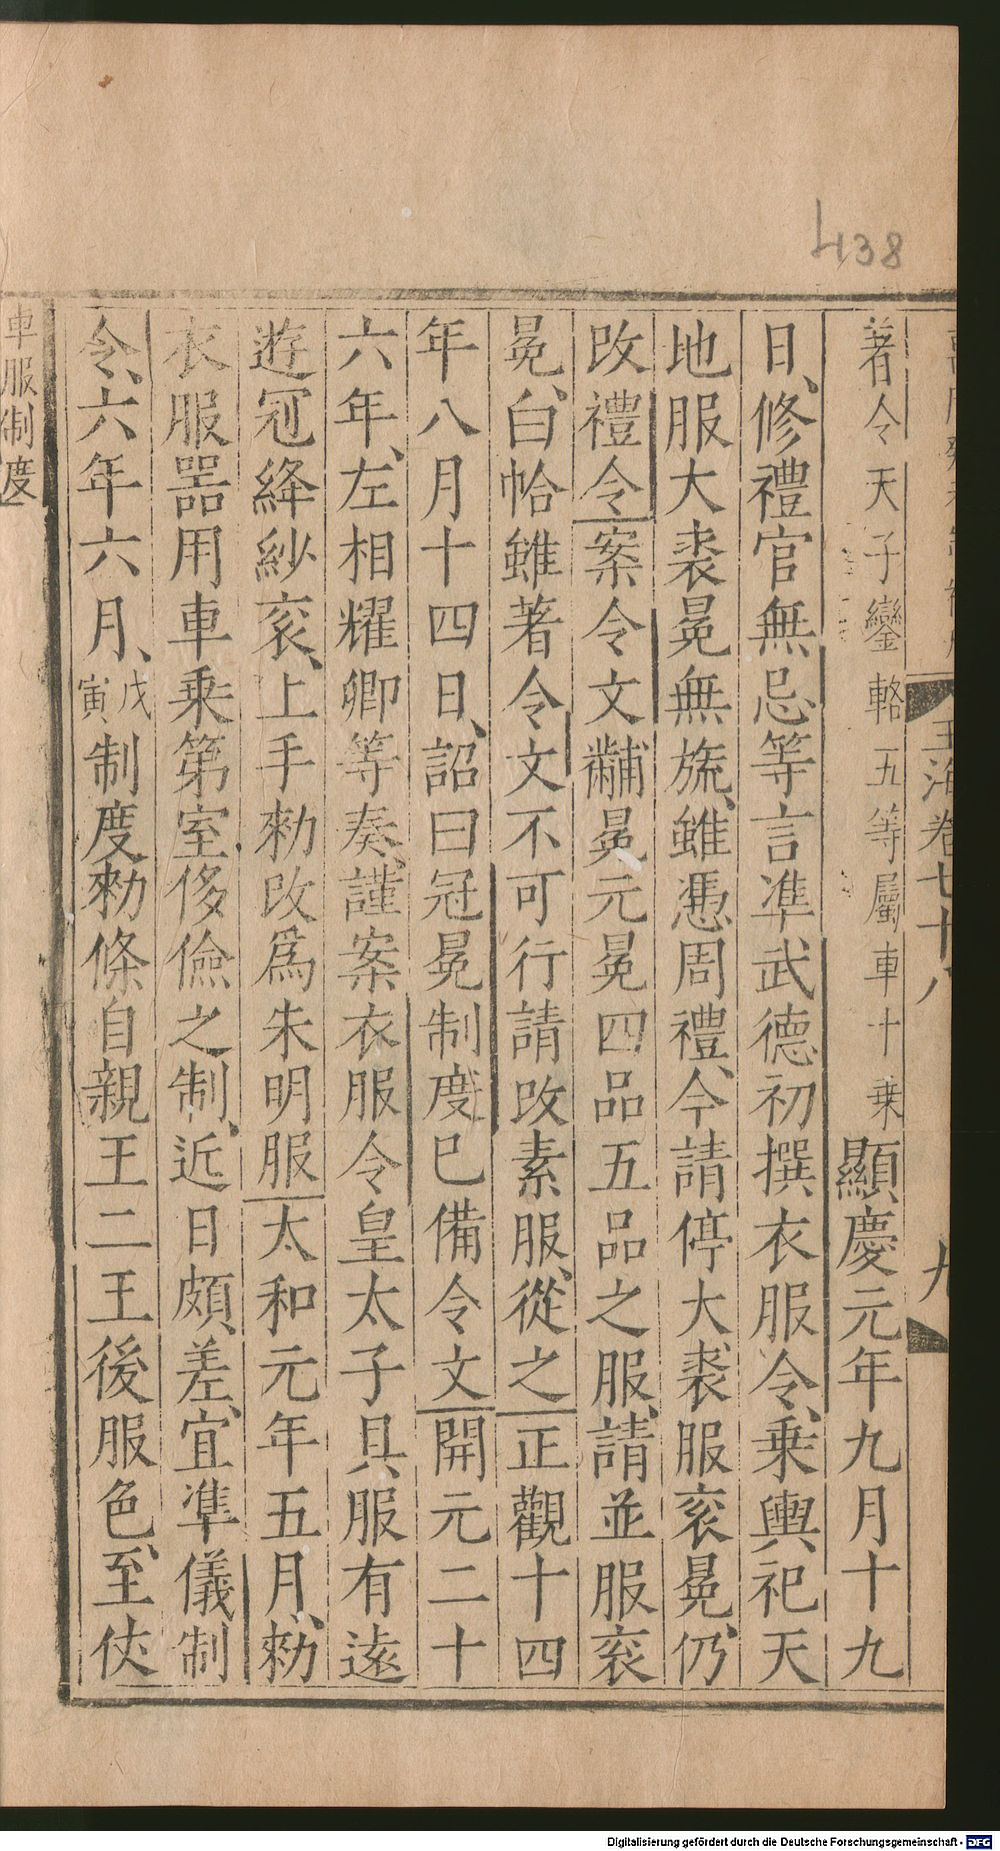 438
玉海卷七十八
九
著令天子鑾輅五等屬車十乗顯慶元年九月十九
日、修禮官無忌等言凖武德初撰衣服令、乗輿祀天
地服大裘冕無旒、雖憑周禮、今請停大裘服衮冕、仍
改禮令案令文黼冕元冕四品五品之服、請並服衮
冕、白帢雖著令文不可行請改素服、從之正觀十四
年八月十四日、詔曰冠冕制度已備令文開元二十
六年、左相耀卿等奏、謹案衣服令皇太子具服有遠
遊冠絳紗衮、上手勑改為朱明服太和元年五月、勑
衣服噐用車乗第室侈儉之制、近日頗差、宜凖儀制
令、六年六月、戊寅制度勑條自親王二王後服色、至使
車服制度
Digitalisierung gefördert durch die Deutsche Forschungsgemeinschaft - DFG